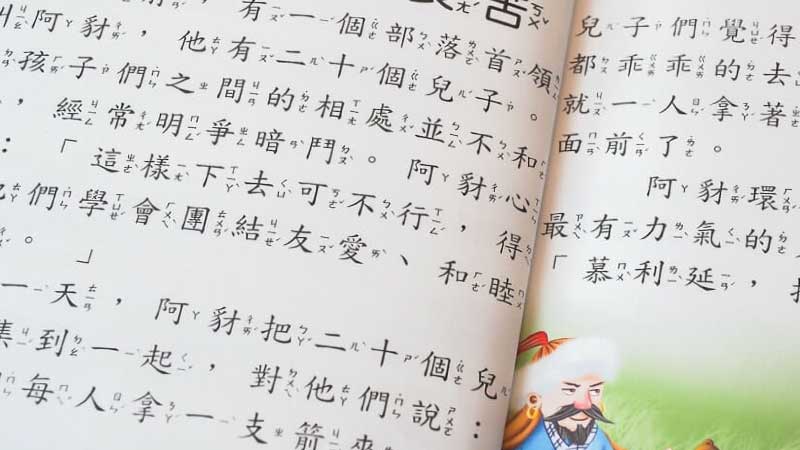 苦
，有一個部落首領
叫阿豺，他有二十個兒子。
孩子們之間的相處並不和
，經常明爭暗鬥。阿豺心
：「這樣下去可不行，得
們學會團結友愛、和睦
。」
一天，阿豺把二十個兒
集到一起，對他們說：
每人拿一支箭來
兒子們覺得
都乖乖的去
就一人拿著
面前了。
阿豺環
最有力氣的
「慕利延，